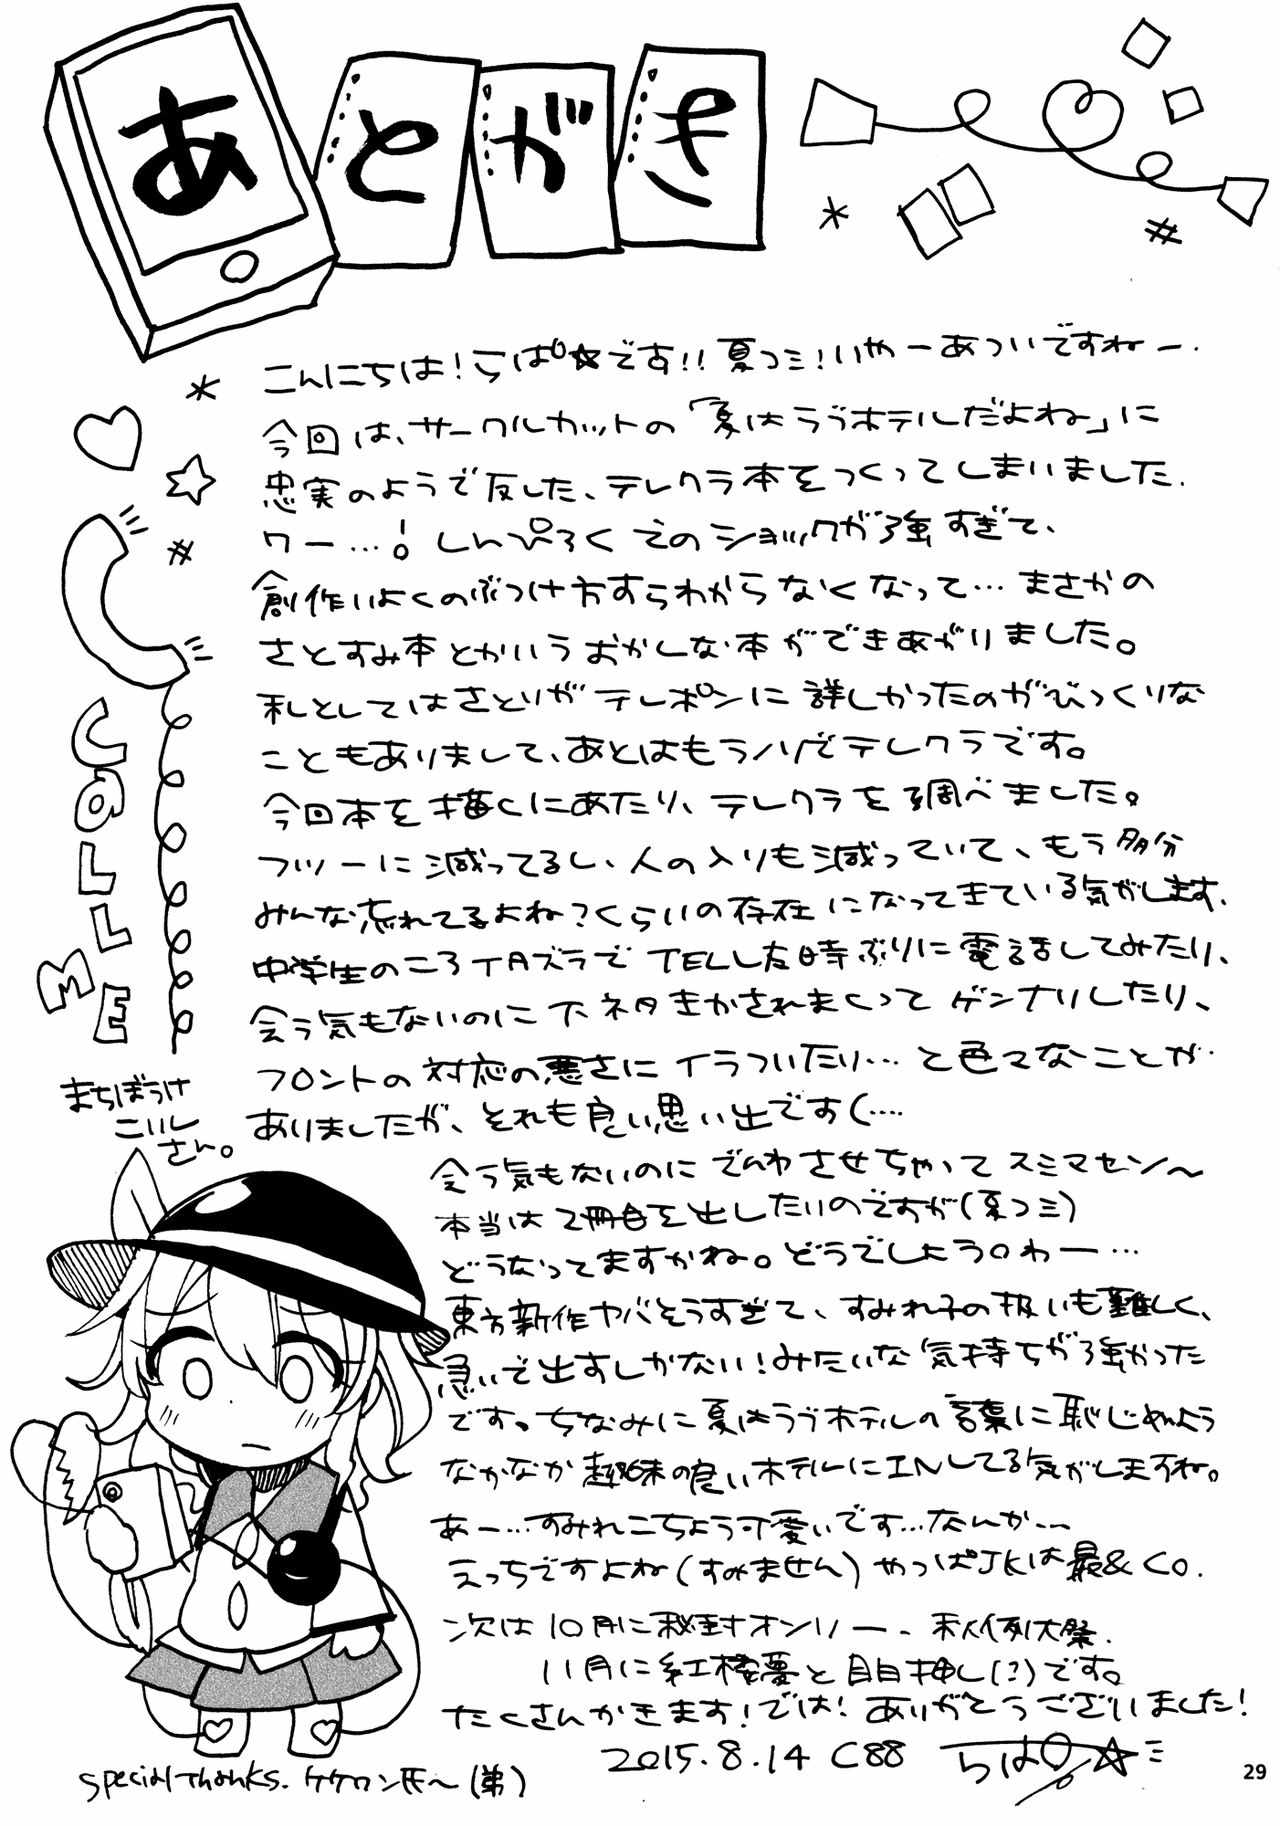 あとがき
こんにちは！らぱ☆です！！夏コミ！いやーあついですねー．
今回は、サークルカットの「夏はラブホテルだよね」に
忠実のようで反した、テレクラ本をつくってしまいました．
ワー…！しんぴろくそのショックが強すぎて、
創作いよくのぶつけ方すらわからなくなって…まさかの
さとすみ本とかいうおかしな本ができあがりました。
私としてはさとりがテレポンに詳しかったのがびっくりな
こともありまして、あとはもうノリでテレクラです。
今回本を描くにあたり、テレクラを調べました。
フツーに減ってるし、人の入りも減っていて、もう多分
みんな忘れてるよね？くらいの存在になってきている気がします．
中学生のころイタズラでTELした時ぶりに電話してみたり、
会う気もないのに下ネタきかされまくってゲンナリしたり、
フロントの対応の悪さにイラついたり…と色々なことが
ありましたが、それも良い思い出です(….
会う気もないのにでんわさせちゃってスミマセン〜
本当は2冊目を出したいのですが(夏コミ)
どうなってますかね。どうでしょう。わー…
東方新作ヤバそうすぎて、すみれ子の扱いも難しく、
急いで出すしかない！みたいな気持ちが強かった
です。ちなみに夏はラブホテルの言葉に恥じぬよう
なかなか趣味の良いホテルにINしてる気がしますね。
あー…すみれこちょう可愛いです…なんか…
えっちですよね(すみません)やっぱJKは最&Co.
次は10月に秘封オンリー、秋例大祭．
11月に紅楼夢と目白押し(?)です。
たくさんかきます！では！ありがとうございました！
2015.8.14 C88 らぱ☆
CALL ME
まちぼうけ
こいし
さん。
special thanks. ケケワン氏〜(弟)
29